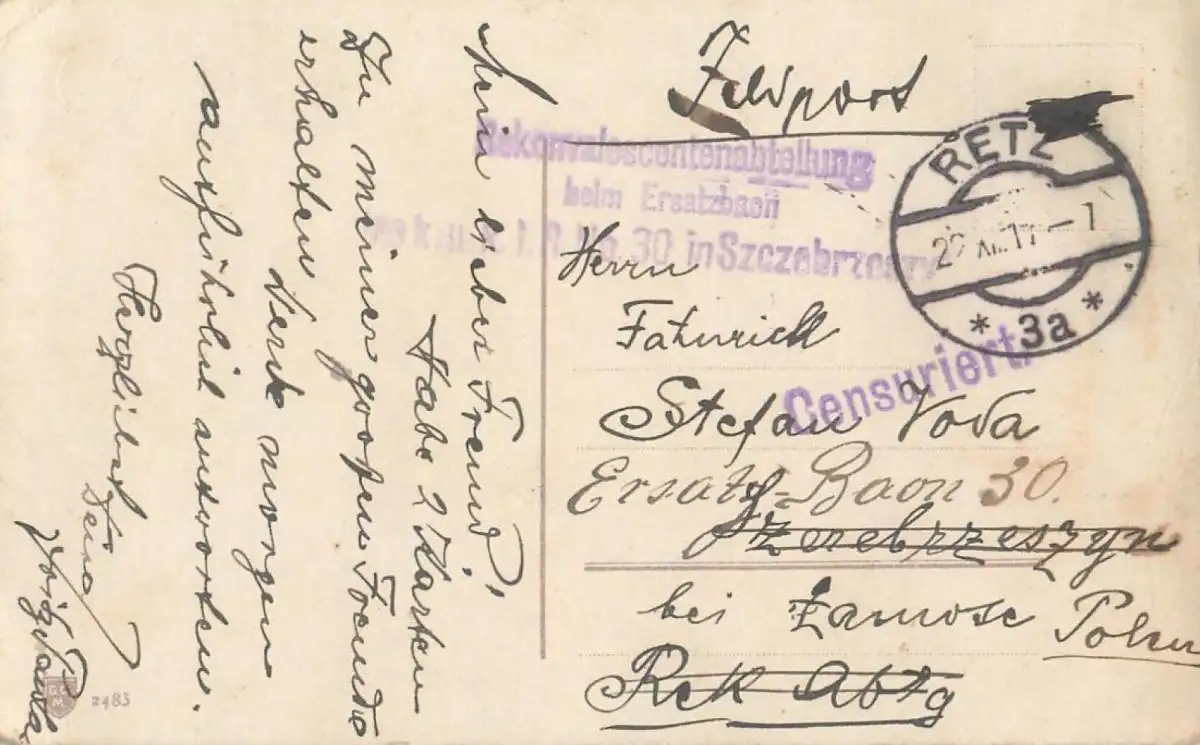 Mein lieber Freund!
Habe 2 Karten
zu meiner grossen Freude
erhalten. Werde morgen
ausführlich antworten.
Herzliebst
Feldpost
Rekonvalescentenabteilung
beim Ersatzbaon
k.u.k. I. R. No. 30 in Szczebrzeszyn
RETZ
XII. 17 - 7
* 3a *
Censuriert.
Herrn
Fähnrich
Stefan Voda
Ersatz-Baon 30.
Szczebrzeszyn
bei Zamosc Polen
Rek Abtg
2483